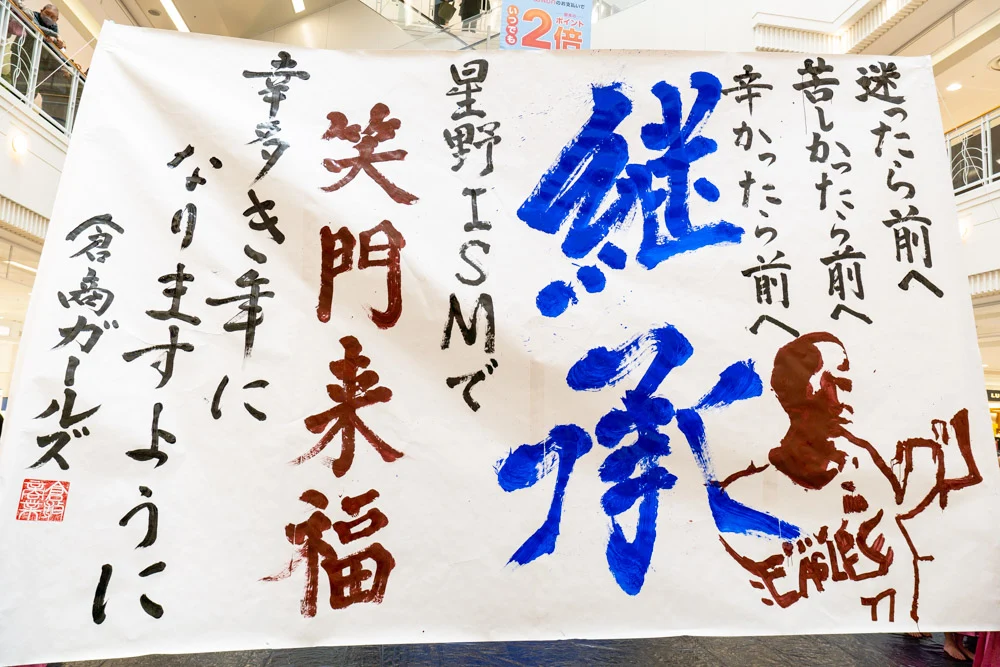 迷ったら前へ
苦しかったら前へ
辛かったら前へ
継承
星野ISMで
笑門来福
幸多き年に
なりますように
倉商ガールズ
EAGLES
77
いつでも
ポイント
2倍